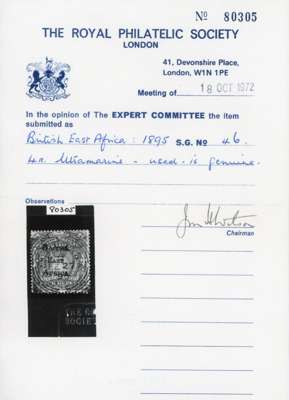 No 80305
THE ROYAL PHILATELIC SOCIETY
LONDON
41, Devonshire Place,
London, W1N 1PE
Meeting of 18 OCT 1972
In the opinion of The EXPERT COMMITTEE the item
submitted as
British East Africa: 1895 S.G. No 46.
4a. Ultramarine - used - is genuine.
Observations
80305
British
East
Africa
Chairman
SOCIET